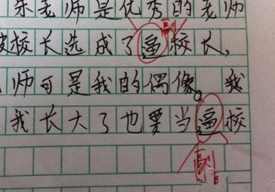 朱老师是优秀的老师
被校长选成了逼校长，
师可是我的偶像。我
我长大了也要当逼校
副